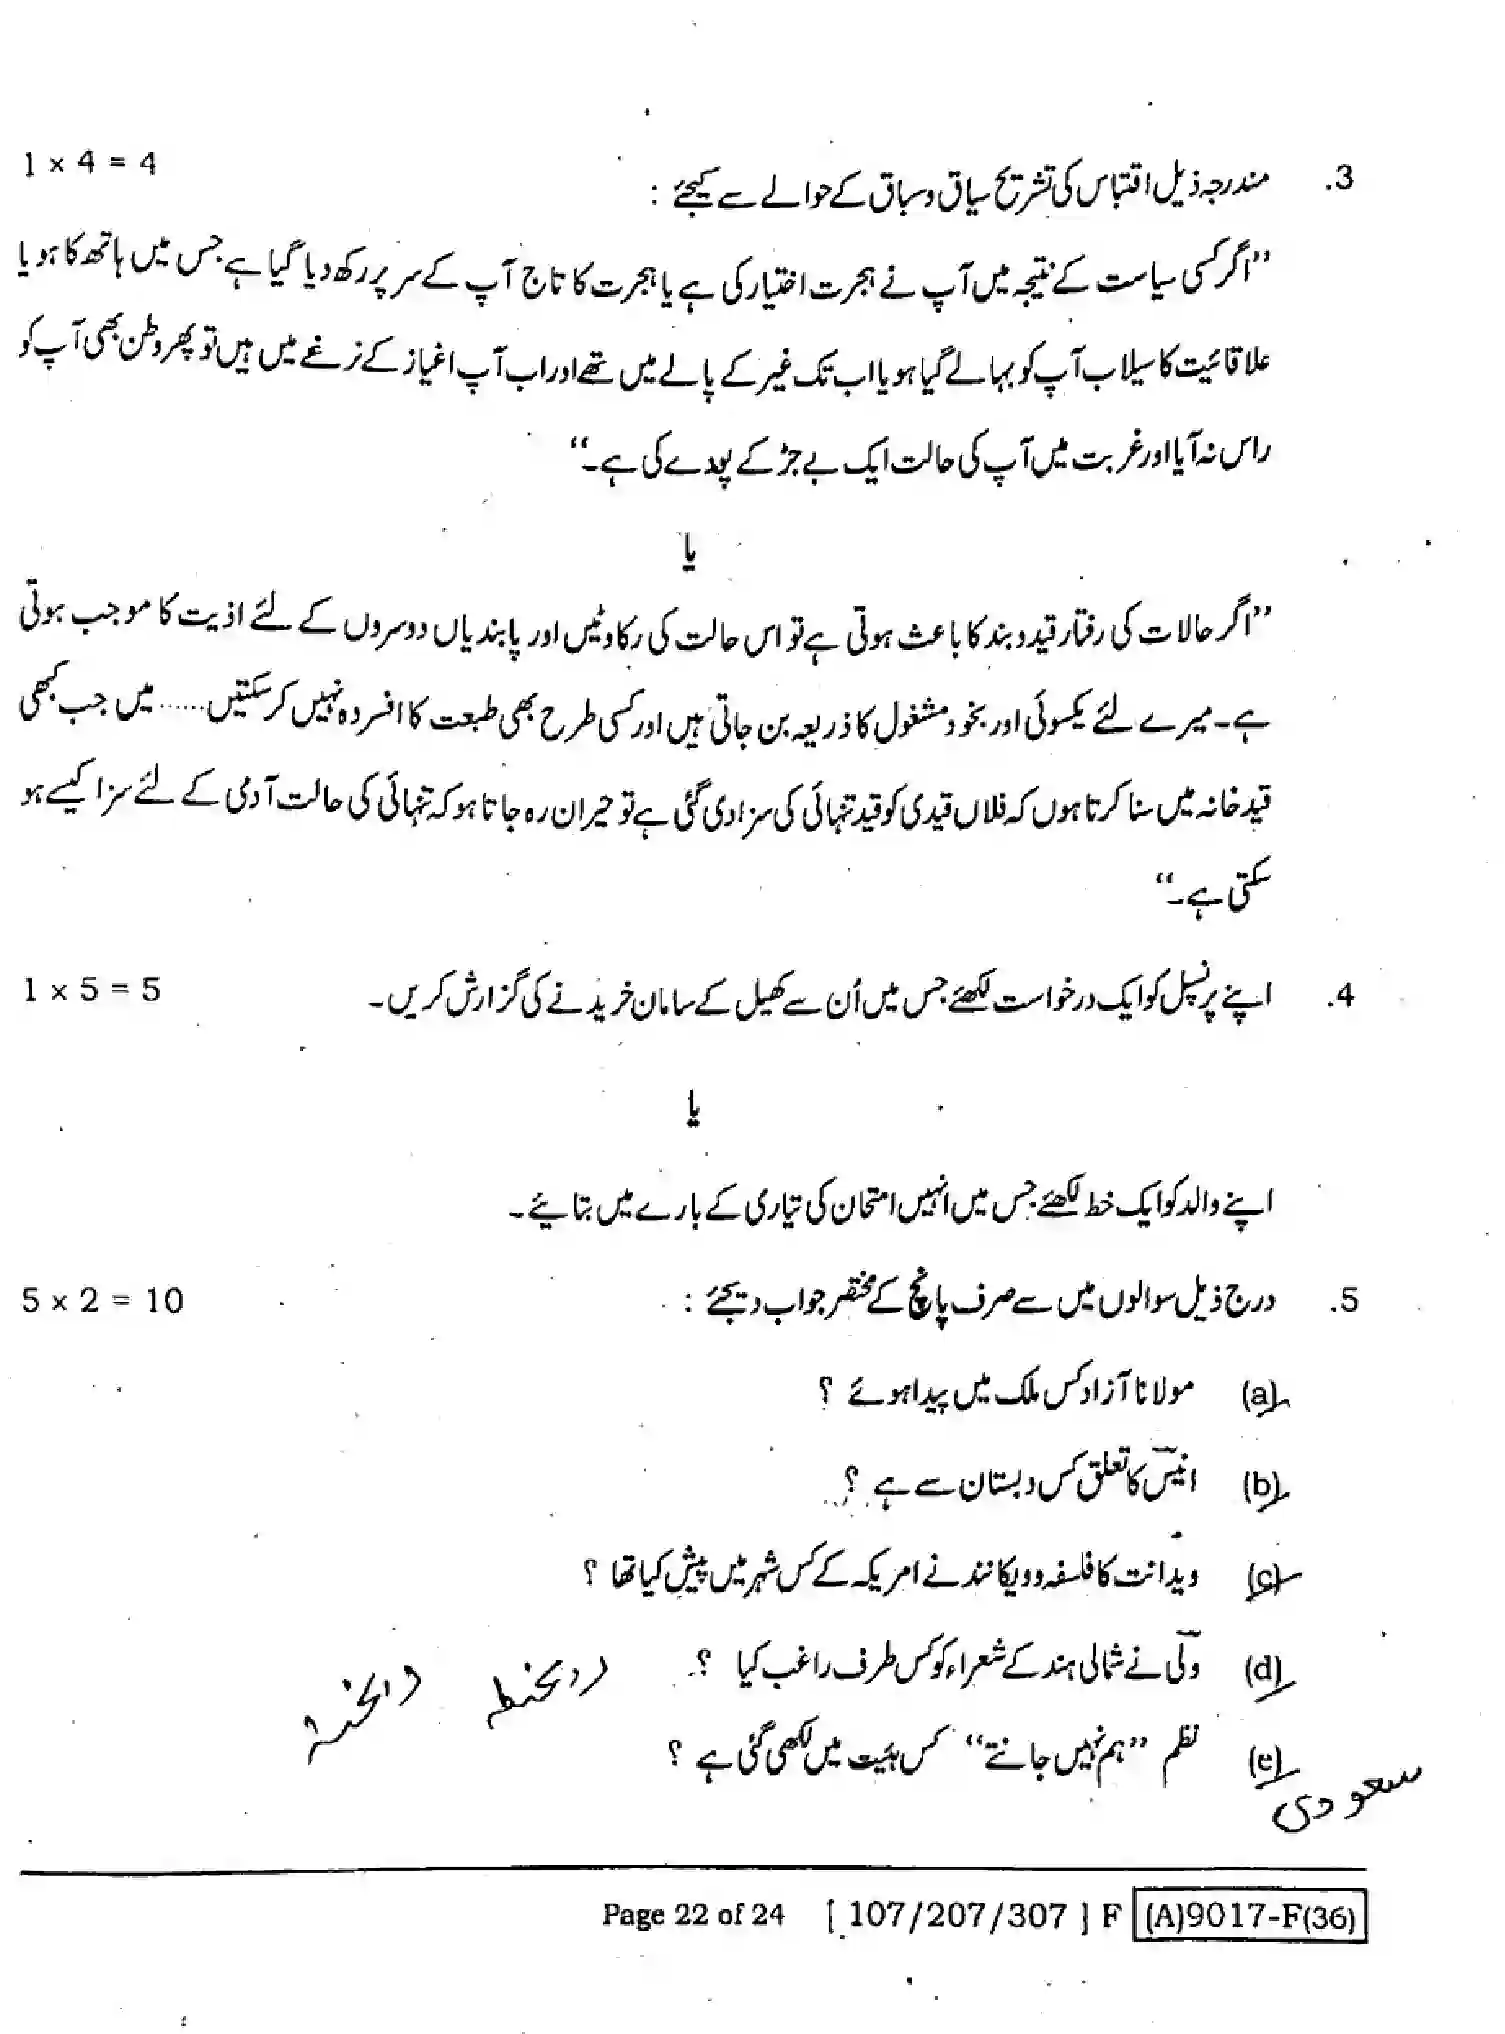 3. مندرجہ ذیل اقتباس کی تشریح سیاق و سباق کے حوالے سے کیجئے : 1 x 4 = 4
”اگر کسی سیاست کے نتیجہ میں آپ نے ہجرت اختیار کی ہے یا ہجرت کا تاج آپ کے سر پر رکھ دیا گیا ہے جس میں ہاتھ کا ہو یا
علاقائیت کا سیلاب آپ کو بہا لے گیا ہو یا اب تک غیر کے پالے میں تھے اور اب آپ اغیار کے نرغے میں ہیں تو پھر وطن بھی آپ کو
راس نہ آیا اور غربت میں آپ کی حالت ایک بے جڑ کے پودے کی ہے۔“
یا
”اگر حالات کی رفتار قید و بند کا باعث ہوتی ہے تو اس حالت کی رکاوٹیں اور پابندیاں دوسروں کے لئے اذیت کا موجب ہوتی
ہے۔ میرے لئے یکسوئی اور بخود مشغول کا ذریعہ بن جاتی ہیں اور کسی طرح بھی طبعت کا افسردہ نہیں کر سکتیں...... میں جب کبھی
قید خانہ میں سنا کرتا ہوں کہ فلاں قیدی کو قید تنہائی کی سزا دی گئی ہے تو حیران رہ جاتا ہو کہ تنہائی کی حالت آدمی کے لئے سزا کیسے ہو
سکتی ہے۔“
4. اپنے پرنسپل کو ایک درخواست لکھئے جس میں اُن سے کھیل کے سامان خریدنے کی گزارش کریں۔ 1 x 5 = 5
یا
اپنے والد کو ایک خط لکھئے جس میں انہیں امتحان کی تیاری کے بارے میں بتایئے۔
5. درج ذیل سوالوں میں سے صرف پانچ کے مختصر جواب دیجئے : 5 x 2 = 10
(a) مولانا آزاد کس ملک میں پیدا ہوئے ؟
(b) انیسؔ کا تعلق کس دبستان سے ہے ؟
(c) ویدانت کا فلسفہ وویکانند نے امریکہ کے کس شہر میں پیش کیا تھا ؟
(d) ولیؔ نے شمالی ہند کے شعراء کو کس طرف راغب کیا ؟
(e) نظم ”ہم نہیں جانتے“ کس ہئیت میں لکھی گئی ہے ؟
سعودی
Page 22 of 24 [ 107/207/307 ] F (A)9017-F(36)